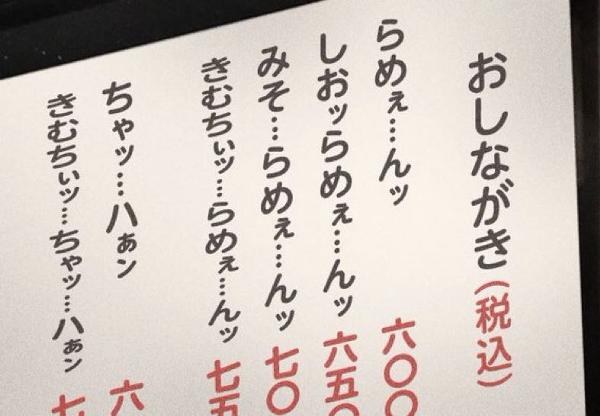 おしながき(税込)
らめぇ…んッ 六〇〇
しおッらめぇ…んッ 六五〇
みそ…らめぇ…んッ 七〇
きむちぃッ…らめぇ…んッ 七五
ちゃッ…ハぁン 六
きむちぃッ…ちゃッ…ハぁン 七